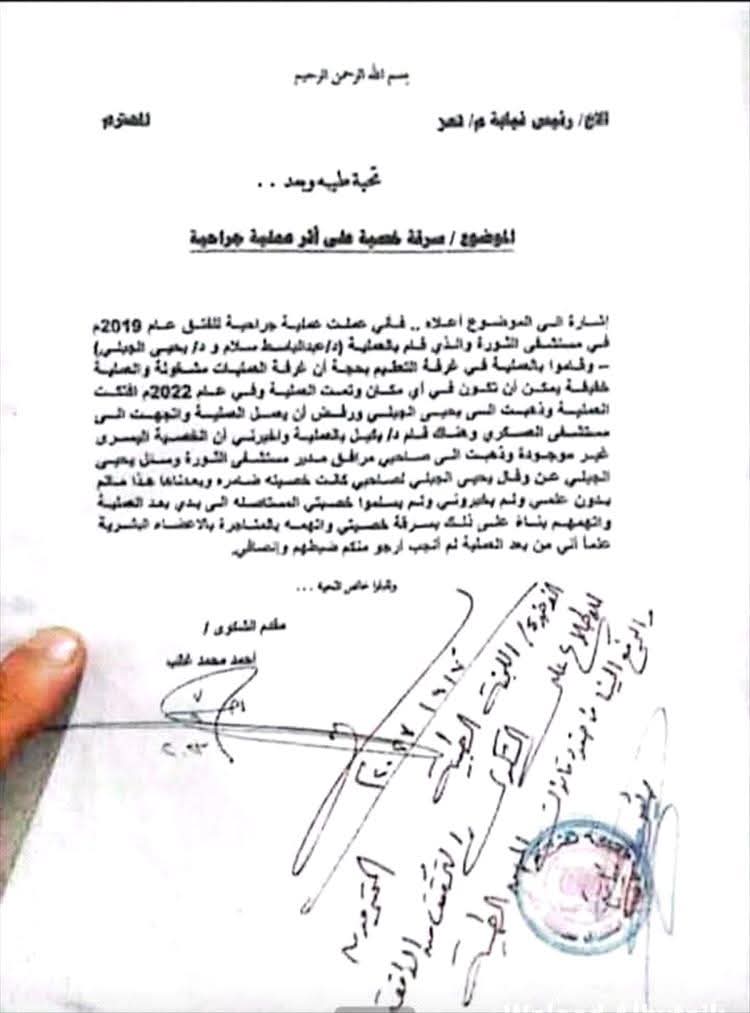 بسم الله الرحمن الرحيم
الاخ/ رئيس نيابة م/ تعز المحترم
تحية طيبه وبعد ..
الموضوع / سرقة خصية على أثر عملية جراحية
إشارة الى الموضوع أعلاه .. فأني عملت عملية جراحية للفتق عام 2019م
في مستشفى الثورة والذي قام بالعملية (د/عبدالباسط سلام و د/ يحيى الجبلي)
– وقاموا بالعملية في غرفة التعقيم بحجة أن غرفة العمليات مشغولة والعملية
خفيفة يمكن أن تكون في أي مكان وتمت العملية وفي عام 2022م افتكت
العملية وذهبت الى يحيى الجبلي ورفض أن يعمل العملية واتجهت الى
مستشفى العسكري وهناك قام د/ بكيل بالعملية واخبرني أن الخصية اليسرى
غير موجودة وذهبت الى صاحبي مرافق مدير مستشفى الثورة وسئل يحيى
الجبلي عن وقال يحيى الجبلي لصاحبي كانت خصيته ضامره وبعدناها هذا مالم
بدون علمي ولم يخبروني ولم يسلموا خصيتي المستاصله الى يدي بعد العملية
واتهمهم بناءً على ذلك بسرقة خصيتي واتهمه بالمتاجرة بالاعضاء البشرية
علماً أني من بعد العملية لم أنجب أرجو منكم ضبطهم وإنصافي.
وتقبلوا خالص التحيه ...
مقدم الشكوى /
احمد محمد غالب
٢٠٢٣
الاخوة/ اللجنة الطبية
للاطلاع على الشكوى